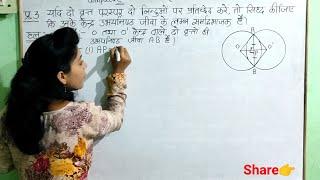 प्र.3 यदि दो वृत्त परस्पर दो बिन्दुओं पर प्रतिच्छेद करें, तो सिद्ध कीजिए
कि उनके केन्द्र उभयनिष्ठ जीवा के लम्ब समद्विभाजक हैं।
हल :- O तथा O' केन्द्र वाले दो वृत्तों की
उभयनिष्ठ जीवा AB है।
(i) AP
A
O
O'
B
Share